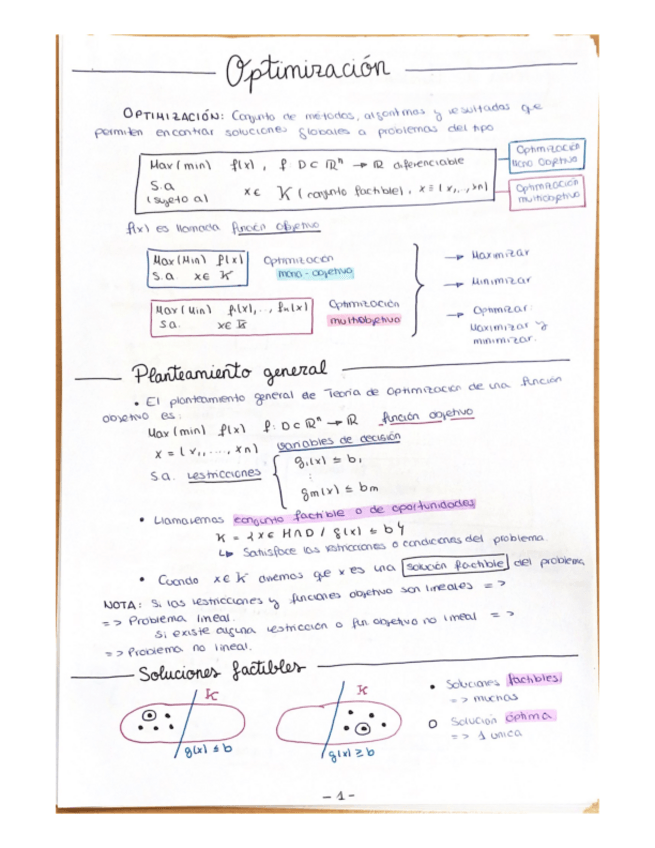 Optimización
OPTIMIZACIÓN: Conjunto de métodos, algoritmos y resultados que
permiten encontrar soluciones globales a problemas del tipo
Max (min) f(x), f: D ⊂ ℝⁿ → ℝ diferenciable
S.a
(sujeto a) x ∈ K (conjunto factible), x = (x₁,..,xn)
Optimización
Mono objetivo
Optimización
multiobjetivo
f(x) es llamada función objetivo
Max (Min) f(x)
S.a. x ∈ K
Optimización
mono-objetivo
Max (Min) f₁(x),.., fn(x)
S.a. x ∈ K
Optimización
multiobjetivo
→ Maximizar
→ Minimizar
→ Optimizar:
Maximizar y
minimizar.
Planteamiento general
• El planteamiento general de Teoría de Optimización de una función
objetivo es:
Max (min) f(x) f: D ⊂ ℝⁿ → ℝ función objetivo
x = (x₁, ..., xn) variables de decisión
S.a. restricciones { g₁(x) ≤ b₁
⋮
gm(x) ≤ bm
• Llamaremos conjunto factible o de oportunidades
K = {x ∈ M∩D / g(x) ≤ b}
↳ Satisface las restricciones o condiciones del problema.
• Cuando x ∈ K diremos que x es una solución factible del problema
NOTA: Si las restricciones y funciones objetivo son lineales =>
=> Problema lineal.
Si existe alguna restricción o fun objetivo no lineal =>
=> Problema no lineal.
Soluciones factibles
K
g(x) ≤ b
K
g(x) ≥ b
• Soluciones factibles
=> muchas
O Solución óptima
=> 1 única
- 1 -